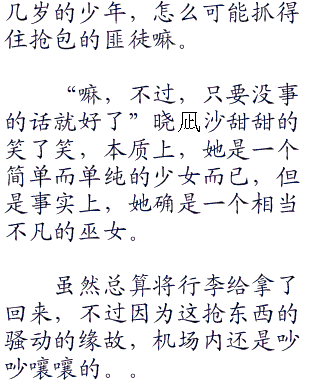 几岁的少年，怎么可能抓得
住抢包的匪徒嘛。
“嘛，不过，只要没事
的话就好了”晓凪沙甜甜的
笑了笑，本质上，她是一个
简单而单纯的少女而已，但
是事实上，她确是一个相当
不凡的巫女。
虽然总算将行李给拿了
回来，不过因为这抢东西的
骚动的缘故，机场内还是吵
吵嚷嚷的。。